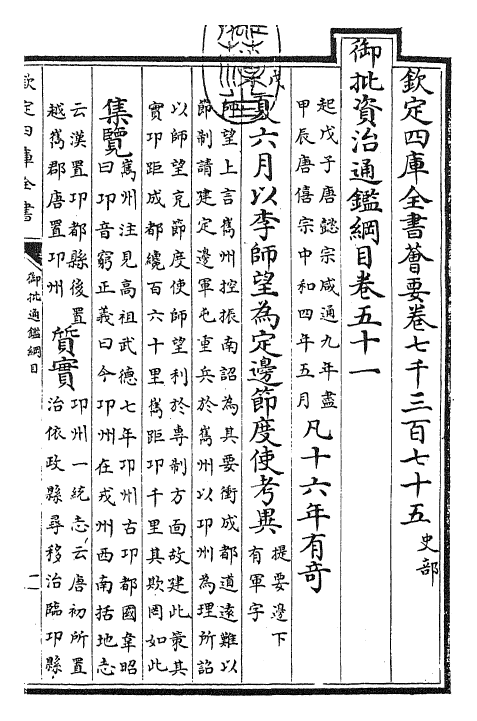 欽定四庫全書薈要卷七千三百七十五 史部
御批資治通鑑綱目卷五十一
起戊子唐懿宗咸通九年盡
甲辰唐僖宗中和四年五月
凡十六年有奇
夏六月以李師望為定邊節度使考異
提要邊下
有軍字
師望上言巂州控振南詔為其要衝成都道遠難以
節制請建定邊軍屯重兵於巂州以卭州為理所詔
以師望充節度使師望利於專制方面故建此策其
實卭距成都纔百六十里巂距卭千里其欺罔如此
集覽
巂州注見高祖武德七年卭州古卭都國韋昭
曰卭音窮正義曰今卭州在戎州西南括地志
云漢置卭都縣後置
越巂郡唐置卭州
質實
卭州一統志云唐初所置
治依政縣尋移治臨卭縣
欽定四庫全書
御批通鑑綱目